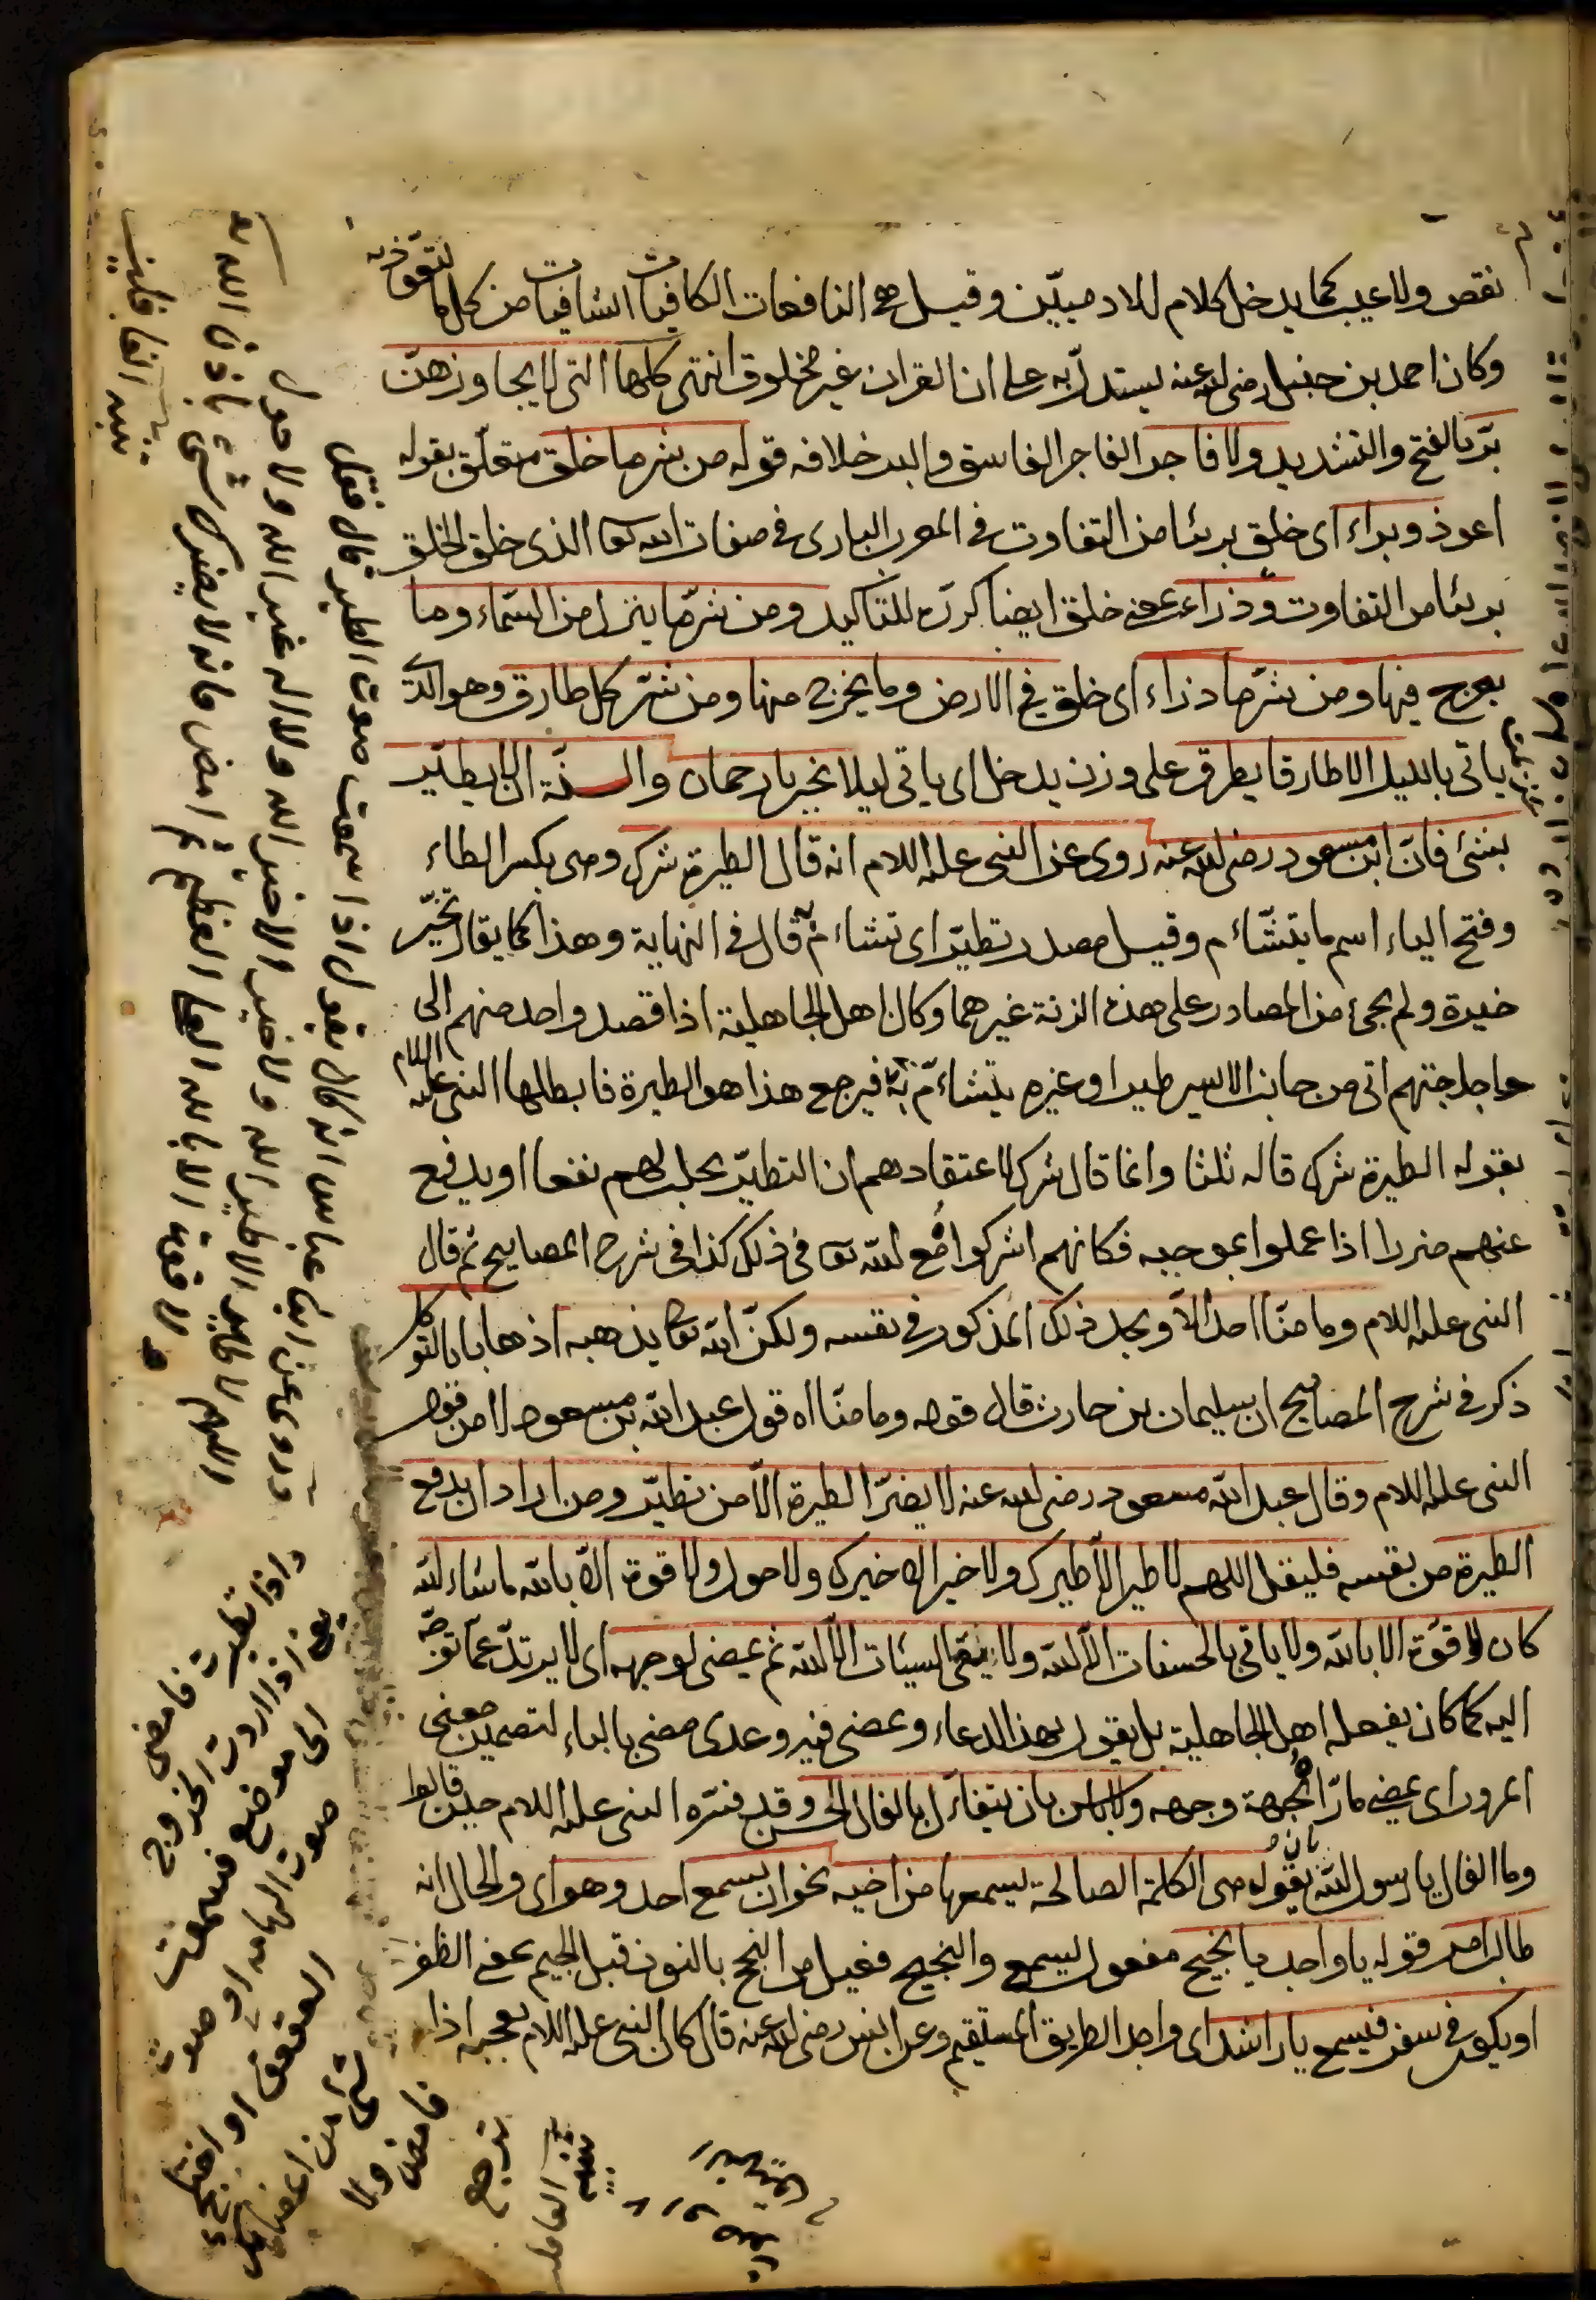 نقص ولا عيب كما يدخل كلام الادميين وقيل هي النافعات الكافيات الشافيات من كل ما يتعوذ به
وكان احمد بن حنبل رضى الله عنه يستدل به على ان القران غير مخلوق انتهى كلامها التى لا يجاوزهن
بر بالفتح والتشديد ولا فاجر الفاجر الفاسق والبر خلافه قوله من شر ما خلق متعلق بقوله
اعوذ وبراء اى خلق بريئا من التفاوت فى المعرب البارى فى صفات الله تعا الذى خلق الخلق
بريئا من التفاوت وذراء بمعنى خلق ايضا كرره للتاكيد ومن شر ما ينزل من السماء وما
يعرج فيها ومن شر ما ذراء اى خلق فى الارض وما يخرج منها ومن شر كل طارق وهو الذى
ياتى بالليل الا طارقا يطرق على وزن يدخل اى ياتى ليلا بخير يا رحمان والسنة ان لا يطير
بشئ فان ابن مسعود رضى الله عنه روى عن النبى عليه السلام انه قال الطيرة شرك وهى بكسر الطاء
وفتح الياء اسم ما يتشاءم وقيل مصدر تطير اى تشاءم قال فى النهاية وهذا كما يقال تخير
خيرة ولم يجئ من المصادر على هذه الزنة غيرهما وكان اهل الجاهلية اذا قصد واحد منهم الى
حاجتهم اتى من جانب الايسر طير او غيره يتشاءم به فيرجع هذا هو الطيرة فابطلها النبى عليه السلام
بقوله الطيرة شرك قاله ثلثا وانما قال شرك لاعتقادهم ان التطير يجلب لهم نفعا او يدفع
عنهم ضررا اذا عملوا بموجبه فكانهم اشركوا مع الله تعا فى ذلك كذا فى شرح المصابيح ثم قال
النبى عليه السلام وما منا احد الا ويجد ذلك المذكور فى نفسه ولكن الله تعا يذهبه اذهابا بالتوكل
ذكر فى شرح المصابيح ان سليمان بن حارث قال قوله وما منا اه قول عبد الله بن مسعود لا من قول
النبى عليه السلام وقال عبد الله مسعود رضى الله عنه لا يضر الطيرة الا من تطير ومن اراد ان يدفع
الطيرة من نفسه فليقل اللهم لا طير الا طيرك ولا خير الا خيرك ولا حول ولا قوة الا بالله ما شاء الله
كان لا قوة الا بالله ولا ياتى بالحسنات الا الله ولا يقى السيئات الا الله ثم يمضى لوجهه اى لا يرتد عما توجه
اليه كما كان يفعله اهل الجاهلية بل يقول بهذا الدعاء ويمضى فيه وعدى مضى بالباء لتضمين معنى
المرور اى يمضى مارا لجهة وجهه ولا باس بان يتفاءل بالفال الحسن وقد فسره النبى عليه السلام حين قالوا
وما الفال يا رسول الله بقوله هى الكلمة الصالحة يسمعها من اخيه نحو ان يسمع احد وهو اى والحال انه
طالب امر قوله يا واجد يا نجيح مفعول ليسمع والنجيح فعيل من النجح بالنون قبل الجيم بمعنى الظفر
او يكون فى سفر فيسمع يا راشد اى واجد الطريق المستقيم وعن انس رضى الله عنه قال كان النبى عليه السلام يعجبه اذا
وروى عن ابن عباس انه كان يقول اذا سمعت صوت الطير قال فقل
اللهم لا طير الا طير الله ولا خير الا خير الله ولا اله غير الله ولا حول
ولا قوة الا بالله العلى العظيم ثم امض فانه لا يضرك شئ باذن الله
تنبيه الغافلين
واذا تطيرت فامض
يعنى اذا اردت الخروج
الى موضع فسمعت
صوت الهامة او صوت
العقعق او اختلج
شئ من اعضائك
فامض ولا
ترجع
تنبيه الغافلين